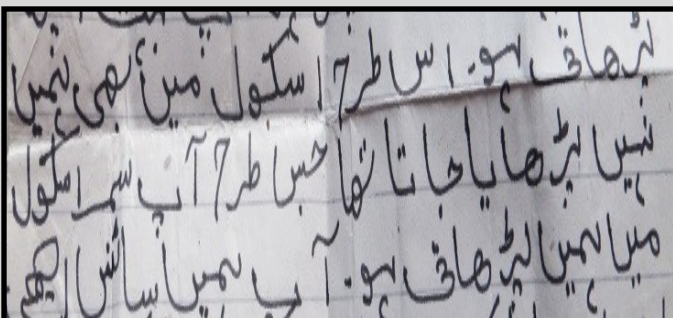 پڑھاتی ہو۔ اس طرح اسکول میں بھی ہمیں
نہیں پڑھایا جاتا تھا جس طرح آپ سمر اسکول
میں ہمیں پڑھاتی ہو۔ آپ ہمیں سائنس